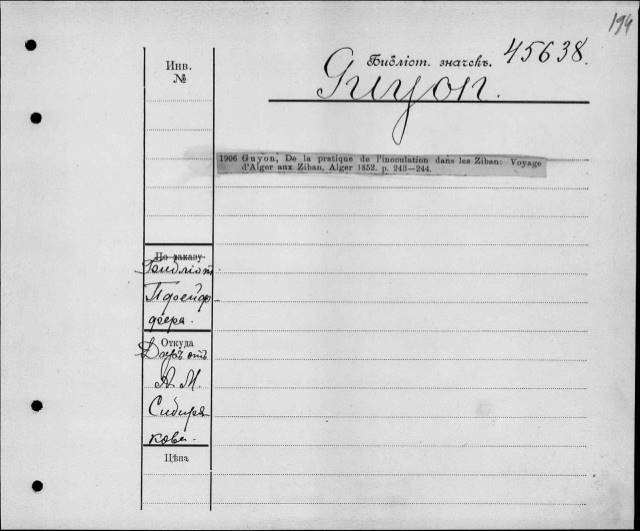 194
Инв.
№
Библіот. значекъ. 45638.
Guyon.
1906 Guyon, De la pratique de l'inoculation dans les Ziban: Voyage
d'Alger aux Ziban, Alger 1852. p. 243—244.
По заказу
Библіот.
Пфейф-
фера.
Откуда
Даръ отъ
А. М.
Сибиря-
кова.
Цѣна